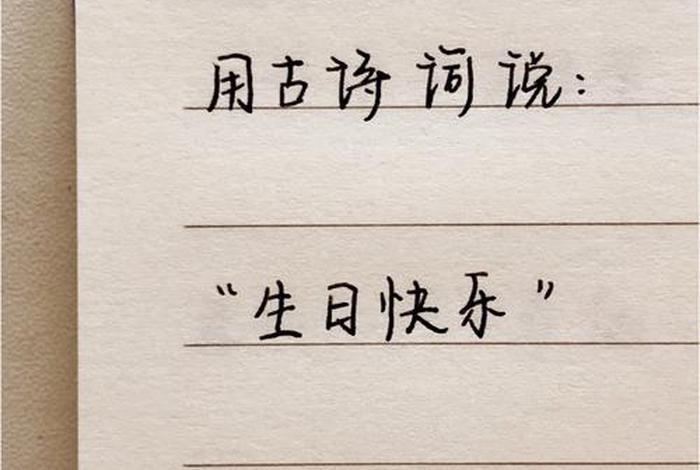 用古诗词说：
“生日快乐”